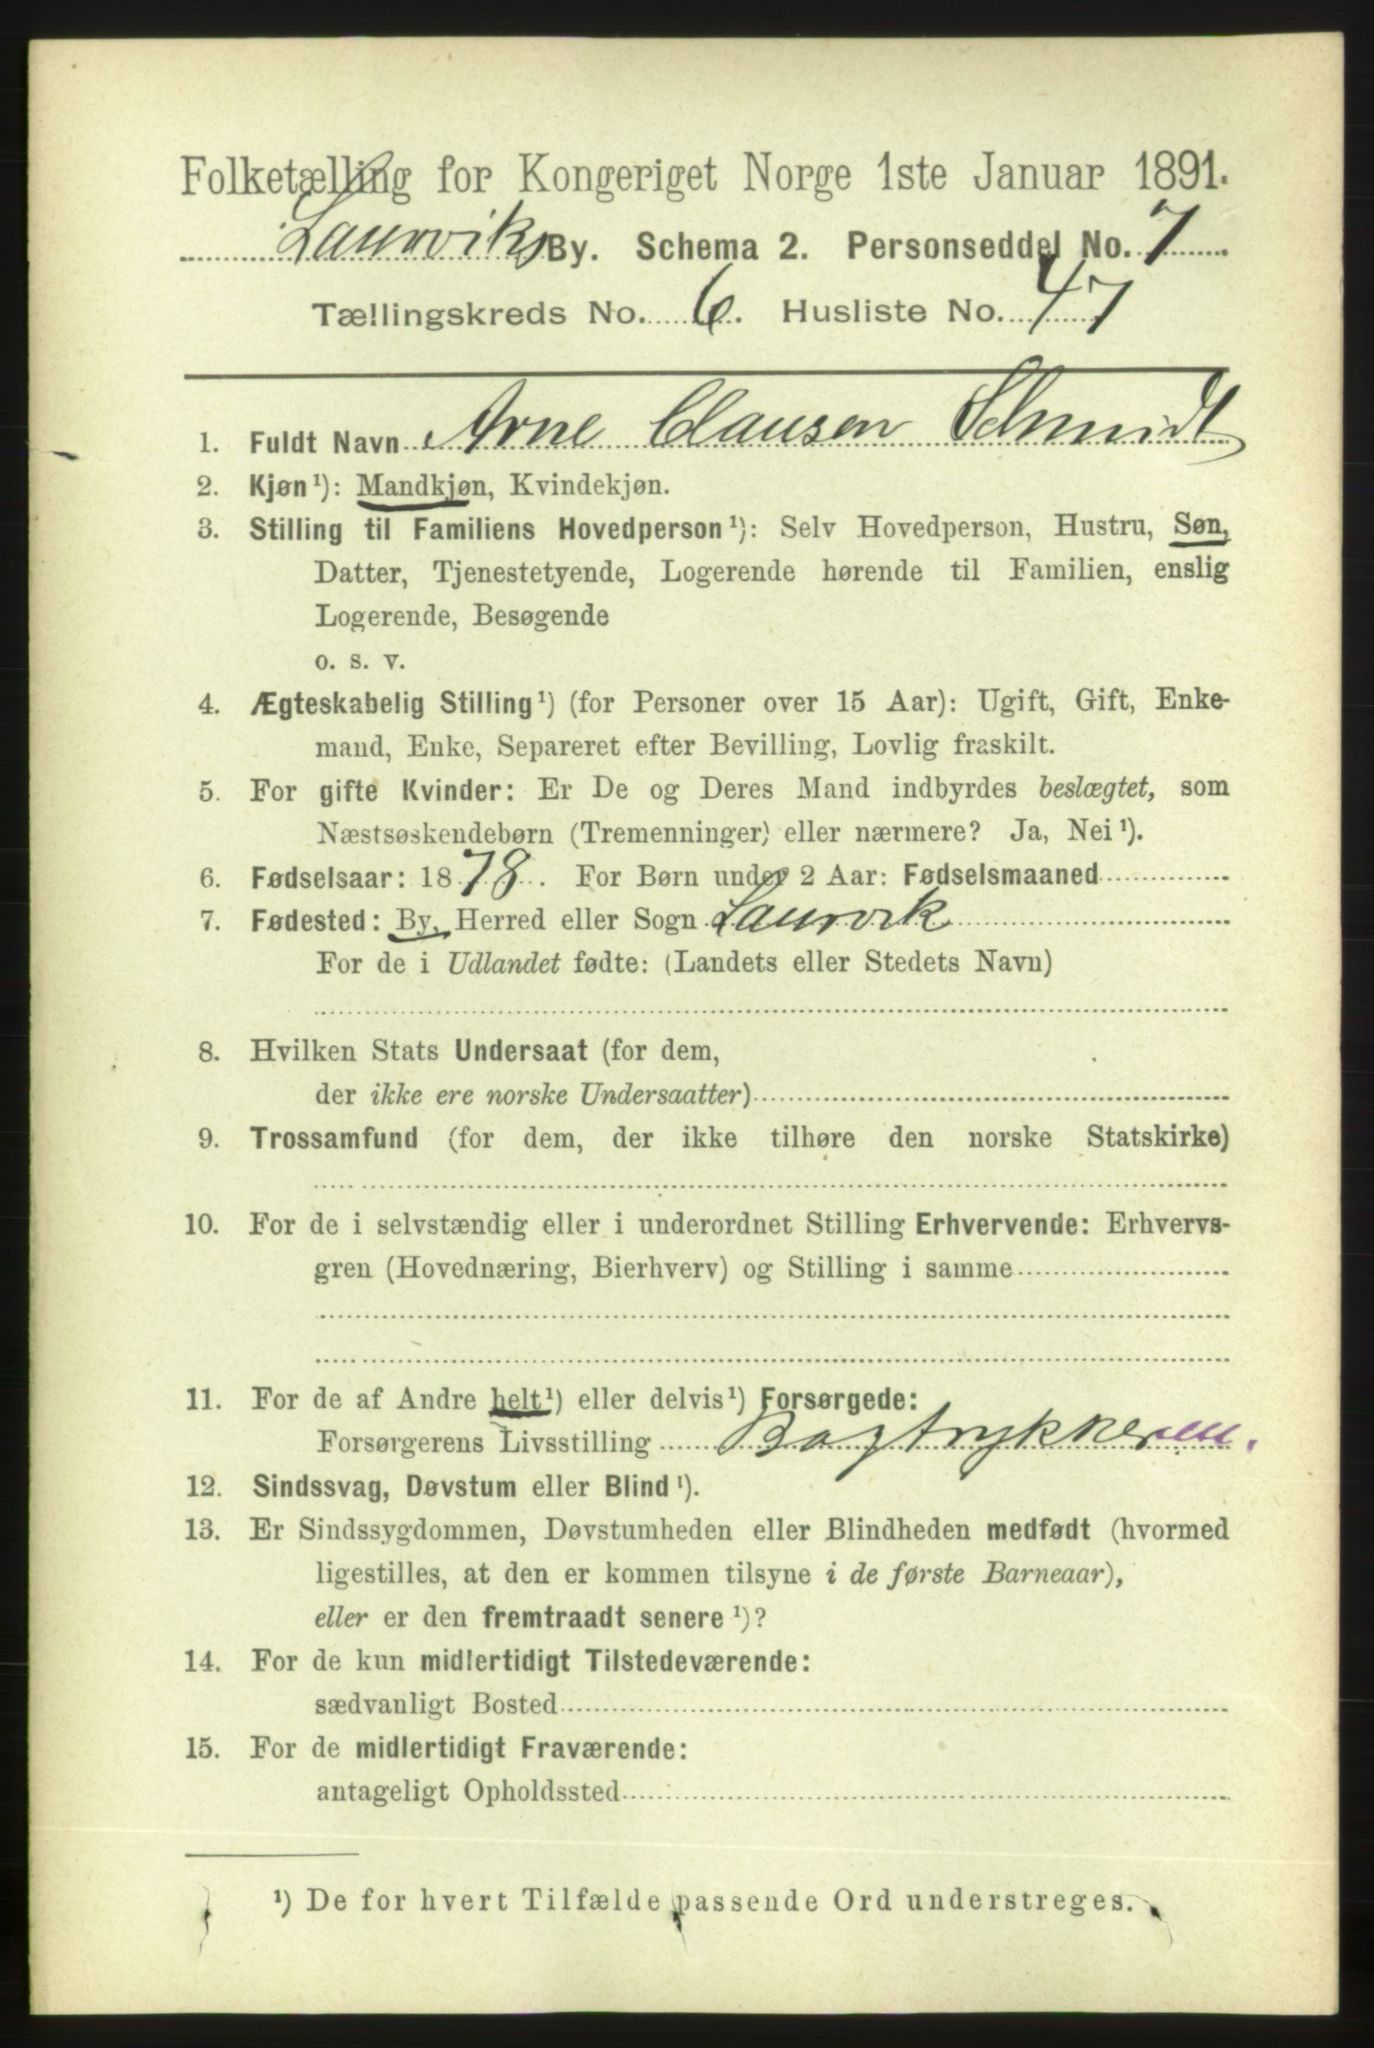 Folketælling for Kongeriget Norge 1ste Januar 1891.
Laurviks By. Schema 2. Personseddel No. 7
Tællingskreds No. 6. Husliste No. 47
1. Fuldt Navn Arne Clausen Schmidt
2. Kjøn¹): Mandkjøn, Kvindekjøn.
3. Stilling til Familiens Hovedperson¹): Selv Hovedperson, Hustru, Søn,
Datter, Tjenestetyende, Logerende hørende til Familien, enslig
Logerende, Besøgende
o. s. v.
4. Ægteskabelig Stilling¹) (for Personer over 15 Aar): Ugift, Gift, Enke-
mand, Enke, Separeret efter Bevilling, Lovlig fraskilt.
5. For gifte Kvinder: Er De og Deres Mand indbyrdes beslægtet, som
Næstsøskendebørn (Tremenninger) eller nærmere? Ja, Nei¹).
6. Fødselsaar: 1878. For Børn under 2 Aar: Fødselsmaaned
7. Fødested: By, Herred eller Sogn Laurvik
For de i Udlandet fødte: (Landets eller Stedets Navn)
8. Hvilken Stats Undersaat (for dem,
der ikke ere norske Undersaatter)
9. Trossamfund (for dem, der ikke tilhøre den norske Statskirke)
10. For de i selvstændig eller i underordnet Stilling Erhvervende: Erhvervs-
gren (Hovednæring, Bierhverv) og Stilling i samme
11. For de af Andre helt¹) eller delvis¹) Forsørgede:
Forsørgerens Livsstilling Bogtrykkeren.
12. Sindssvag, Døvstum eller Blind¹).
13. Er Sindssygdommen, Døvstumheden eller Blindheden medfødt (hvormed
ligestilles, at den er kommen tilsyne i de første Barneaar),
eller er den fremtraadt senere¹)?
14. For de kun midlertidigt Tilstedeværende:
sædvanligt Bosted
15. For de midlertidigt Fraværende:
antageligt Opholdssted
¹) De for hvert Tilfælde passende Ord understreges.